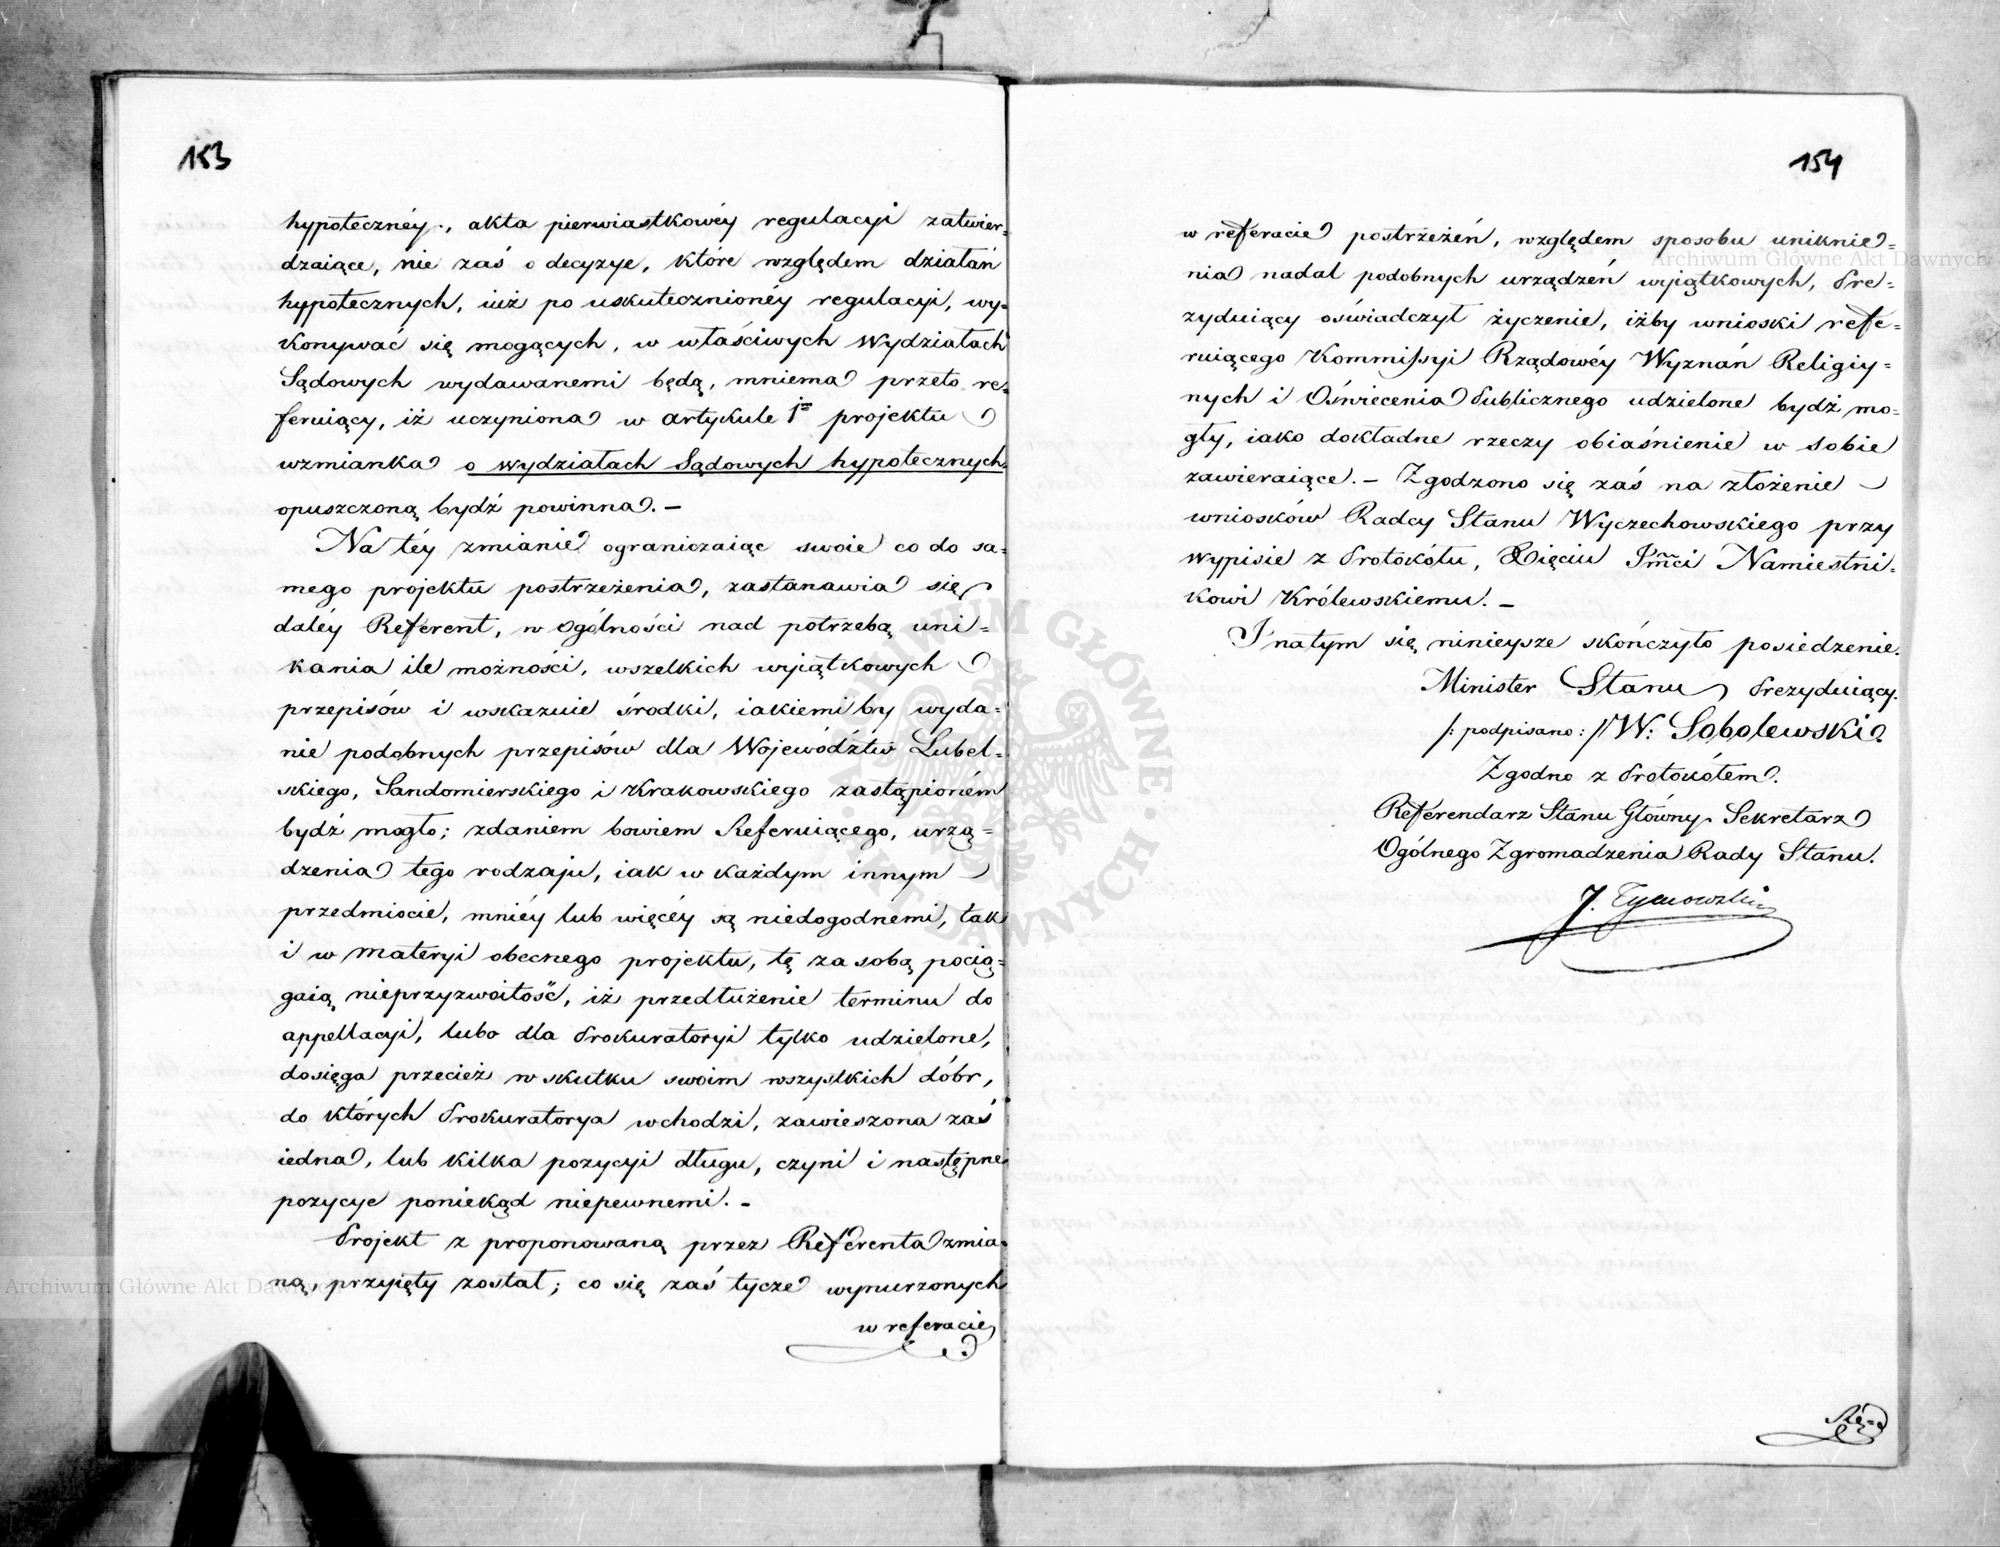 153
hypotecznéy, akta pierwiastkowéy regulacyi zatwier-
dzaiące, nie zaś o decyzye, które względem działań
hypotecznych, iuż po uskutecznionéy regulacyi, wy-
konywać się mogących, w właściwych Wydziałach
Sądowych wydawanemi będą, mniema przeto re-
feruiący, iż uczyniona w artykule 1m projektu
wzmianka o wydziałach Sądowych hypotecznych
opuszczoną bydź powinna. -
Na téy zmianie ograniczaiąc swoie co do sa-
mego projektu postrzeżenia, zastanawia się
daléy Referent, w ogólności nad potrzebą uni-
kania ile możności, wszelkich wyiątkowych
przepisów i wskazuie środki, iakiemi by wyda-
nie podobnych przepisów dla Województw Lubel-
skiego, Sandomierskiego i Krakowskiego zastąpioném
bydź mogło; zdaniem bowiem Referuiącego, urzą-
dzenia tego rodzaju, iak w każdym innym
przedmiocie, mniéy lub więcéy są niedogodnemi, tak
i w materyi obecnego projektu, tę za sobą pocią-
gaią nieprzyzwoitość, iż przedłużenie terminu do
appellacyi, lubo dla Prokuratoryi tylko udzielone,
dosięga przecież w skutku swoim wszystkich dóbr,
do których Prokuratorya wchodzi, zawieszona zaś
iedna, lub kilka pozycyi długu, czyni i następne
pozycye poniekąd niepewnemi. -
Projekt z proponowaną przez Referenta zmia-
ną, przyięty został; co się zaś tycze wynurzonych
w referacie
154
w referacie postrzeżeń, względem sposobu uniknie-
nia nadal podobnych urządzeń wyiątkowych, Pre-
zyduiący oświadczył życzenie, iżby wnioski refe-
ruiącego Kommissyi Rządowéy Wyznań Religiy-
nych i Oświecenia Publicznego udzielone bydź mo-
gły, iako dokładne rzeczy obiaśnienie w sobie
zawieraiące. - Zgodzono się zaś na złożenie
wniosków Radcy Stanu Wyczechowskiego przy
wypisie z Protokółu, Xięciu Jmci Namiestni-
kowi Królewskiemu. -
I na tym się ninieysze skończyło posiedzenie.
Minister Stanu Prezyduiący.
/: podpisano :/ W: Sobolewski.
Zgodno z Protokółem.
Referendarz Stanu Główny Sekretarz
Ogólnego Zgromadzenia Rady Stanu.
J. Tymowski
Archiwum Główne Akt Dawnych
Archiwum Główne Akt Dawnych